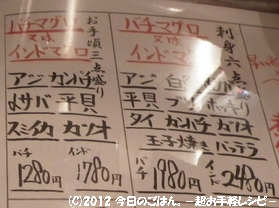 お手頃三点盛り
バチマグロ
又は
インドマグロ
アジ カンパチ
〆サバ 平貝
スミイカ カツオ
バチ 1280円 インド 1780円
刺身六点
バチマグロ
又は
インドマグロ
アジ
平貝 ブリ ホッキ
タイ カンパチ カツオ
玉子焼き バッテラ
バチ 1980円 インド 2480円
(C)2012 今日のごはん。－超お手軽レシピ－